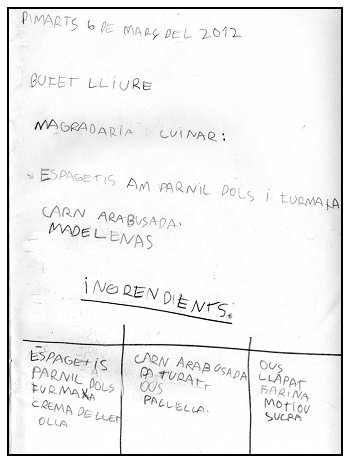 DIMARTS 6 DE MARÇ DEL 2012
BUFET LLIURE
MAGRADARIA CUINAR:
ESPAGETIS AM PARNIL DOLS I FURMAXA
CARN ARABUSADA.
MADELENAS
INGRENDIENTS:
ESPAGETIS
PARNIL DOLS
FURMAXA
CREMA DE LLET
OLLA
CARN ARABUSADA
PA TURATT
OUS
PALLELLA.
OUS
LLAPAT
FARINA
MOTLOU
SUCRA